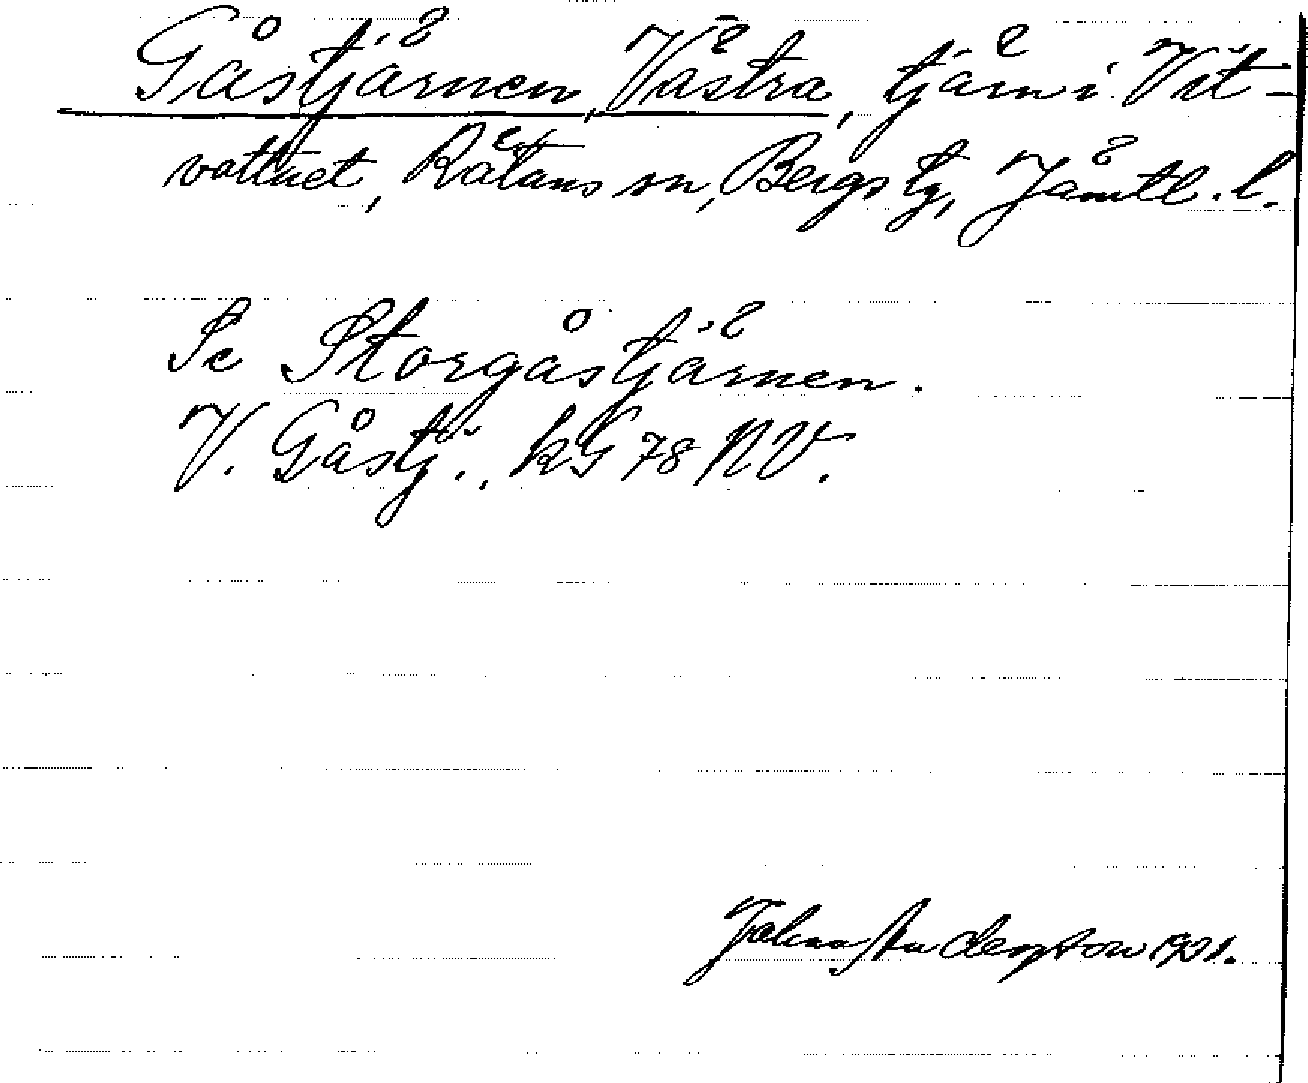 Gåstjärnen, Västra, tjärn i Vit-
vattnet, Rätans sn, Bergs tg, Jämtl. l.
Se Storgåstjärnen.
V. Gåstj:., kG 78 NV.
Johan Anderson 1921.